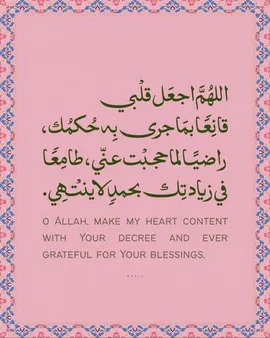 اللهُمَّ اجعَل قلْبي
قانِعًا بمَا جرى بِه حُكمُك،
راضيًا لما حجبْت عنّي، طامِعًا
في زيادتِك بحمدٍ لا ينْتهِي.
O ALLAH, MAKE MY HEART CONTENT
WITH YOUR DECREE AND EVER
GRATEFUL FOR YOUR BLESSINGS.